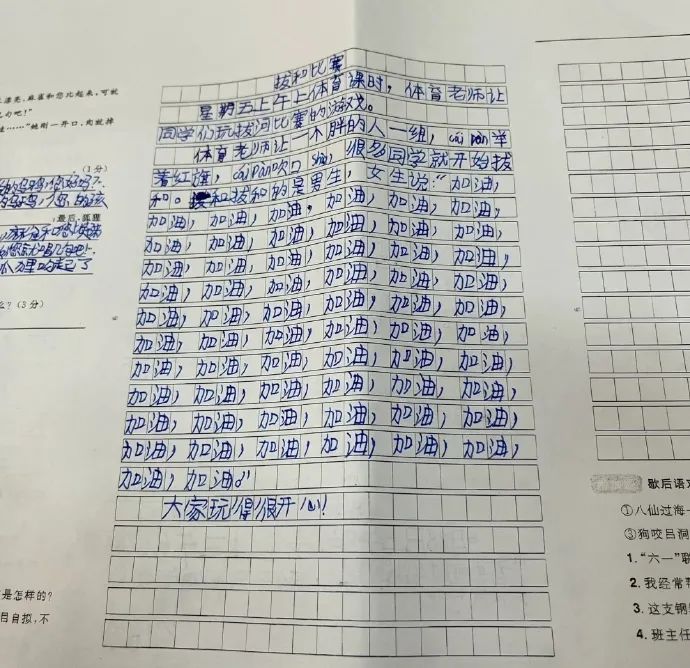 漂亮，麻雀和您比起来，可就
句吧！"
……"她刚一开口，肉就掉
(1分)
最后，狐狸
么？(3分)
是怎样的？
目自拟，不
拔和比赛
星期五上午上体育课时，体育老师让
同学们玩拔河比赛的游戏。
体育老师让一个胖的人一组，cái pàn举
着红旗，cái pàn吹口shào，很多同学就开始拔
和。拔和的是男生，女生说："加油，
加油，加油，加油，加油，加油，加油，
加油，加油，加油，加油，加油，加油，
加油，加油，加油，加油，加油，加油，
加油，加油，加油，加油，加油，加油，
加油，加油，加油，加油，加油，加油，
加油，加油，加油，加油，加油，加油，
加油，加油，加油，加油，加油，加油，
加油，加油，加油，加油，加油，加油，
加油，加油，加油，加油，加油，加油，
加油，加油，加油，加油，加油，加油，
加油，加油。"
大家玩得很开心！
歇后语对
①八仙过海
③狗咬吕洞
1."六一"联
2.我经常帮
3.这支钢
4.班主任